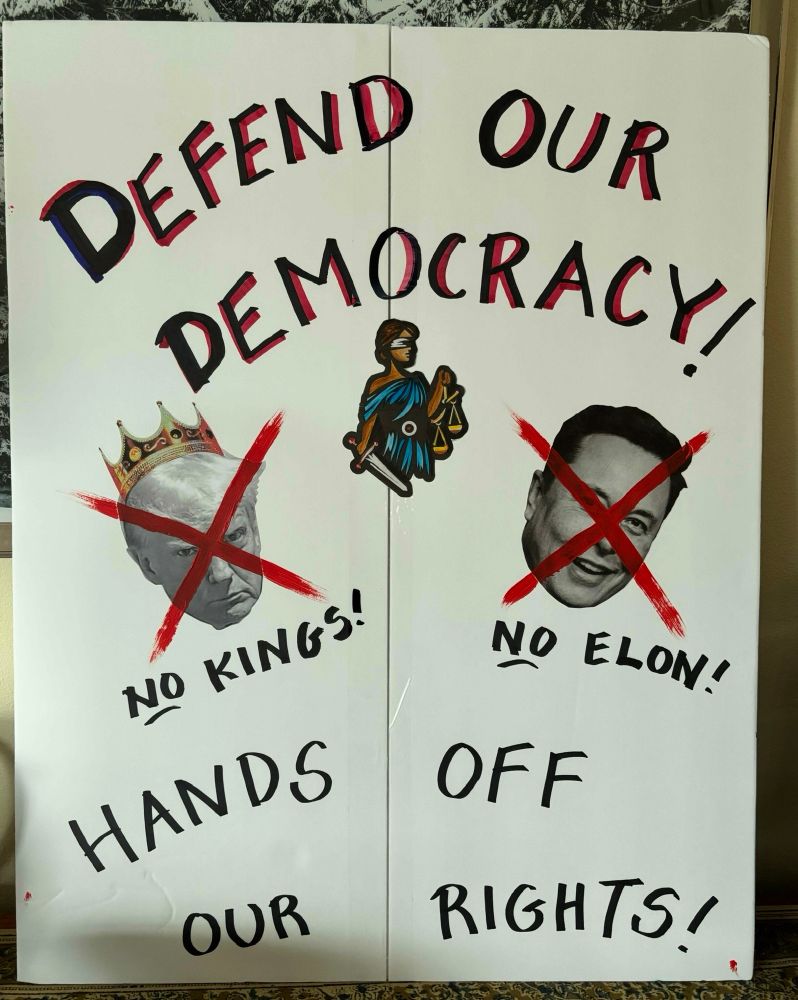 DEFEND OUR
DEMOCRACY!
NO KINGS!
NO ELON!
HANDS OFF
OUR RIGHTS!